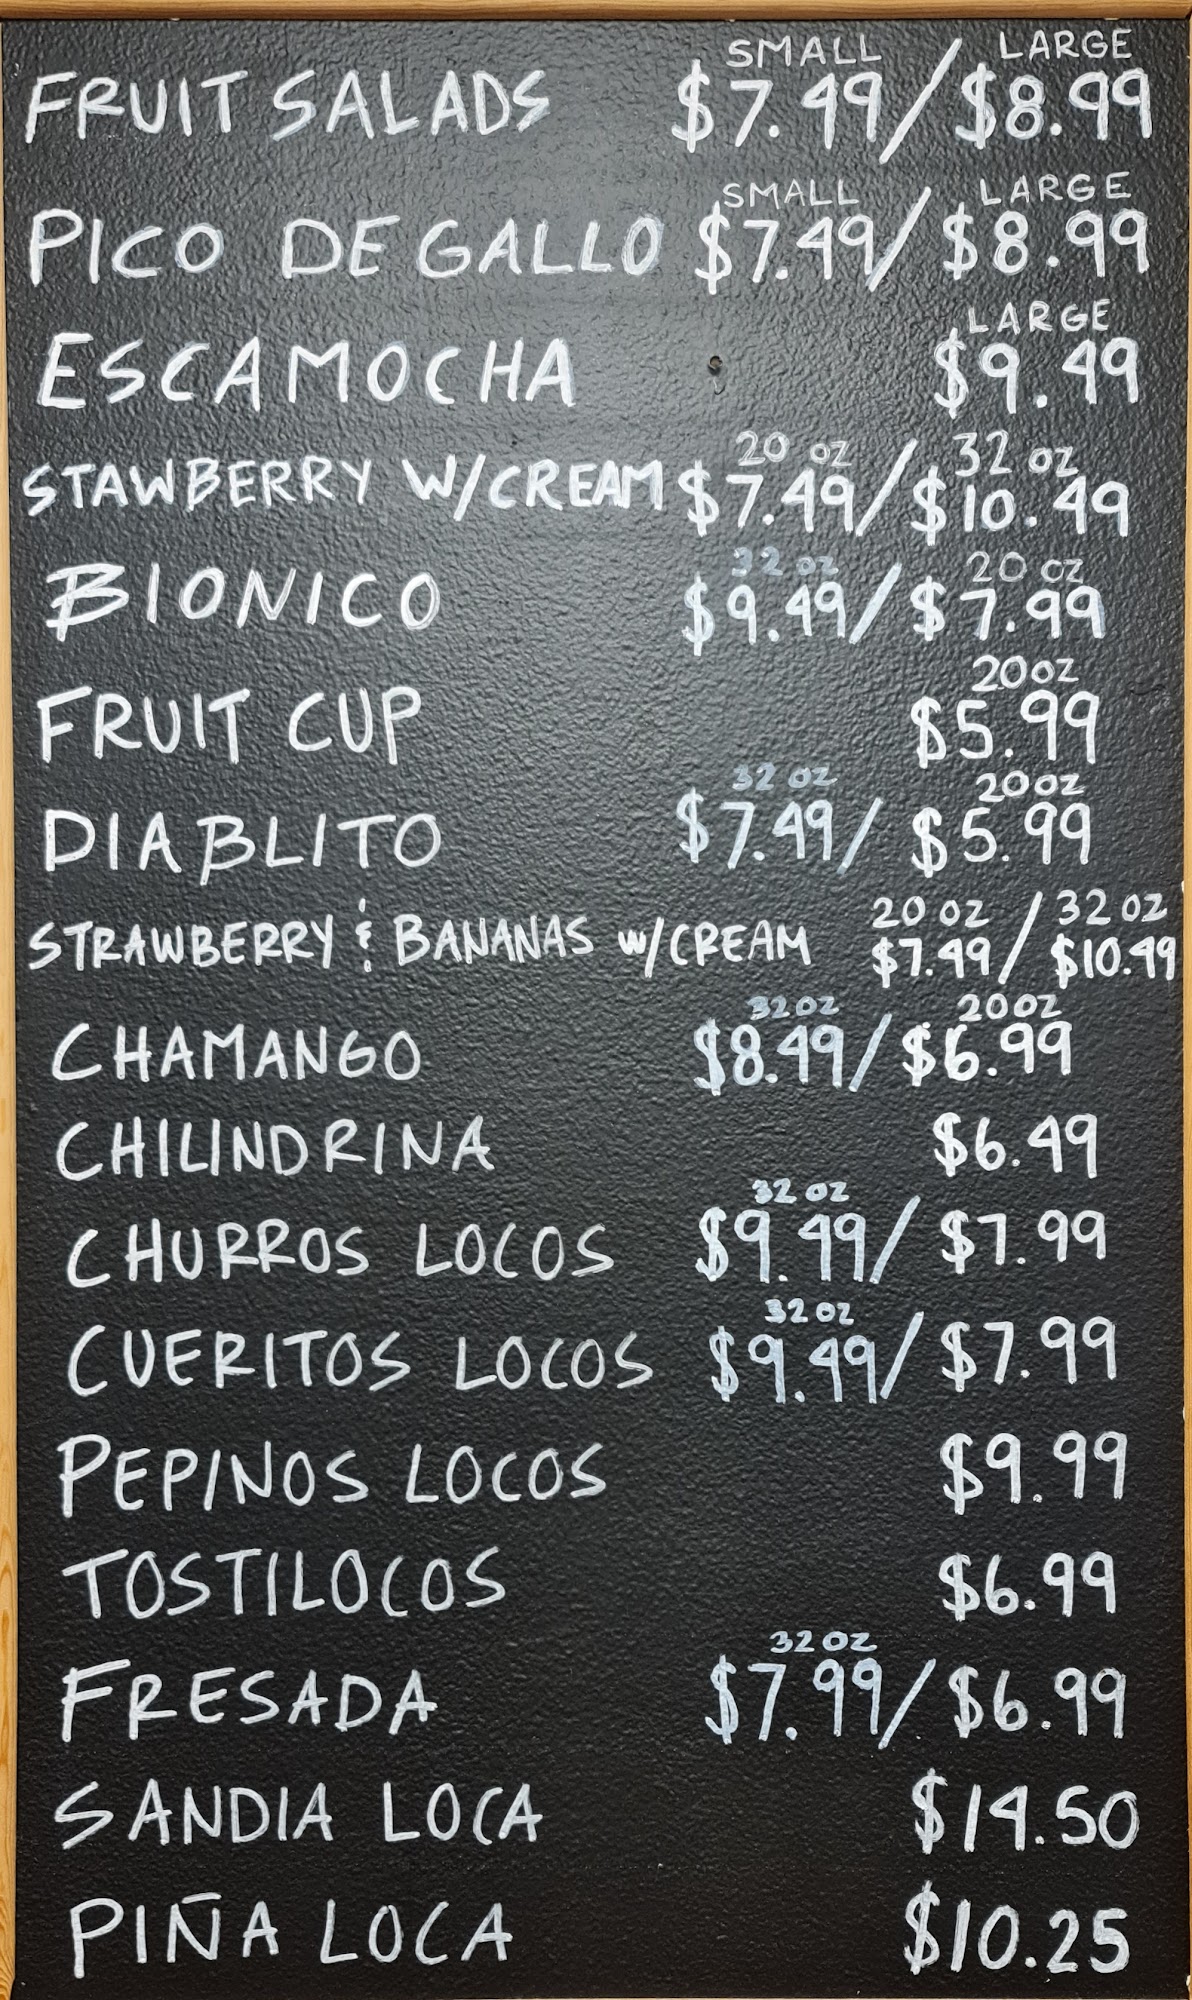 SMALL LARGE
FRUIT SALADS $7.49/$8.99
SMALL LARGE
PICO DE GALLO $7.49/$8.99
LARGE
ESCAMOCHA $9.49
20 OZ 32 OZ
STAWBERRY W/CREAM $7.49/$10.49
32 OZ 20 OZ
BIONICO $9.49/$7.99
20 OZ
FRUIT CUP $5.99
32 OZ 20 OZ
DIABLITO $7.49/$5.99
20 OZ / 32 OZ
STRAWBERRY & BANANAS W/CREAM $7.49/$10.49
32 OZ 20 OZ
CHAMANGO $8.49/$6.99
CHILINDRINA $6.49
32 OZ
CHURROS LOCOS $9.49/$7.99
32 OZ
CUERITOS LOCOS $9.49/$7.99
PEPINOS LOCOS $9.99
TOSTILOCOS $6.99
32 OZ
FRESADA $7.99/$6.99
SANDIA LOCA $14.50
PIÑA LOCA $10.25